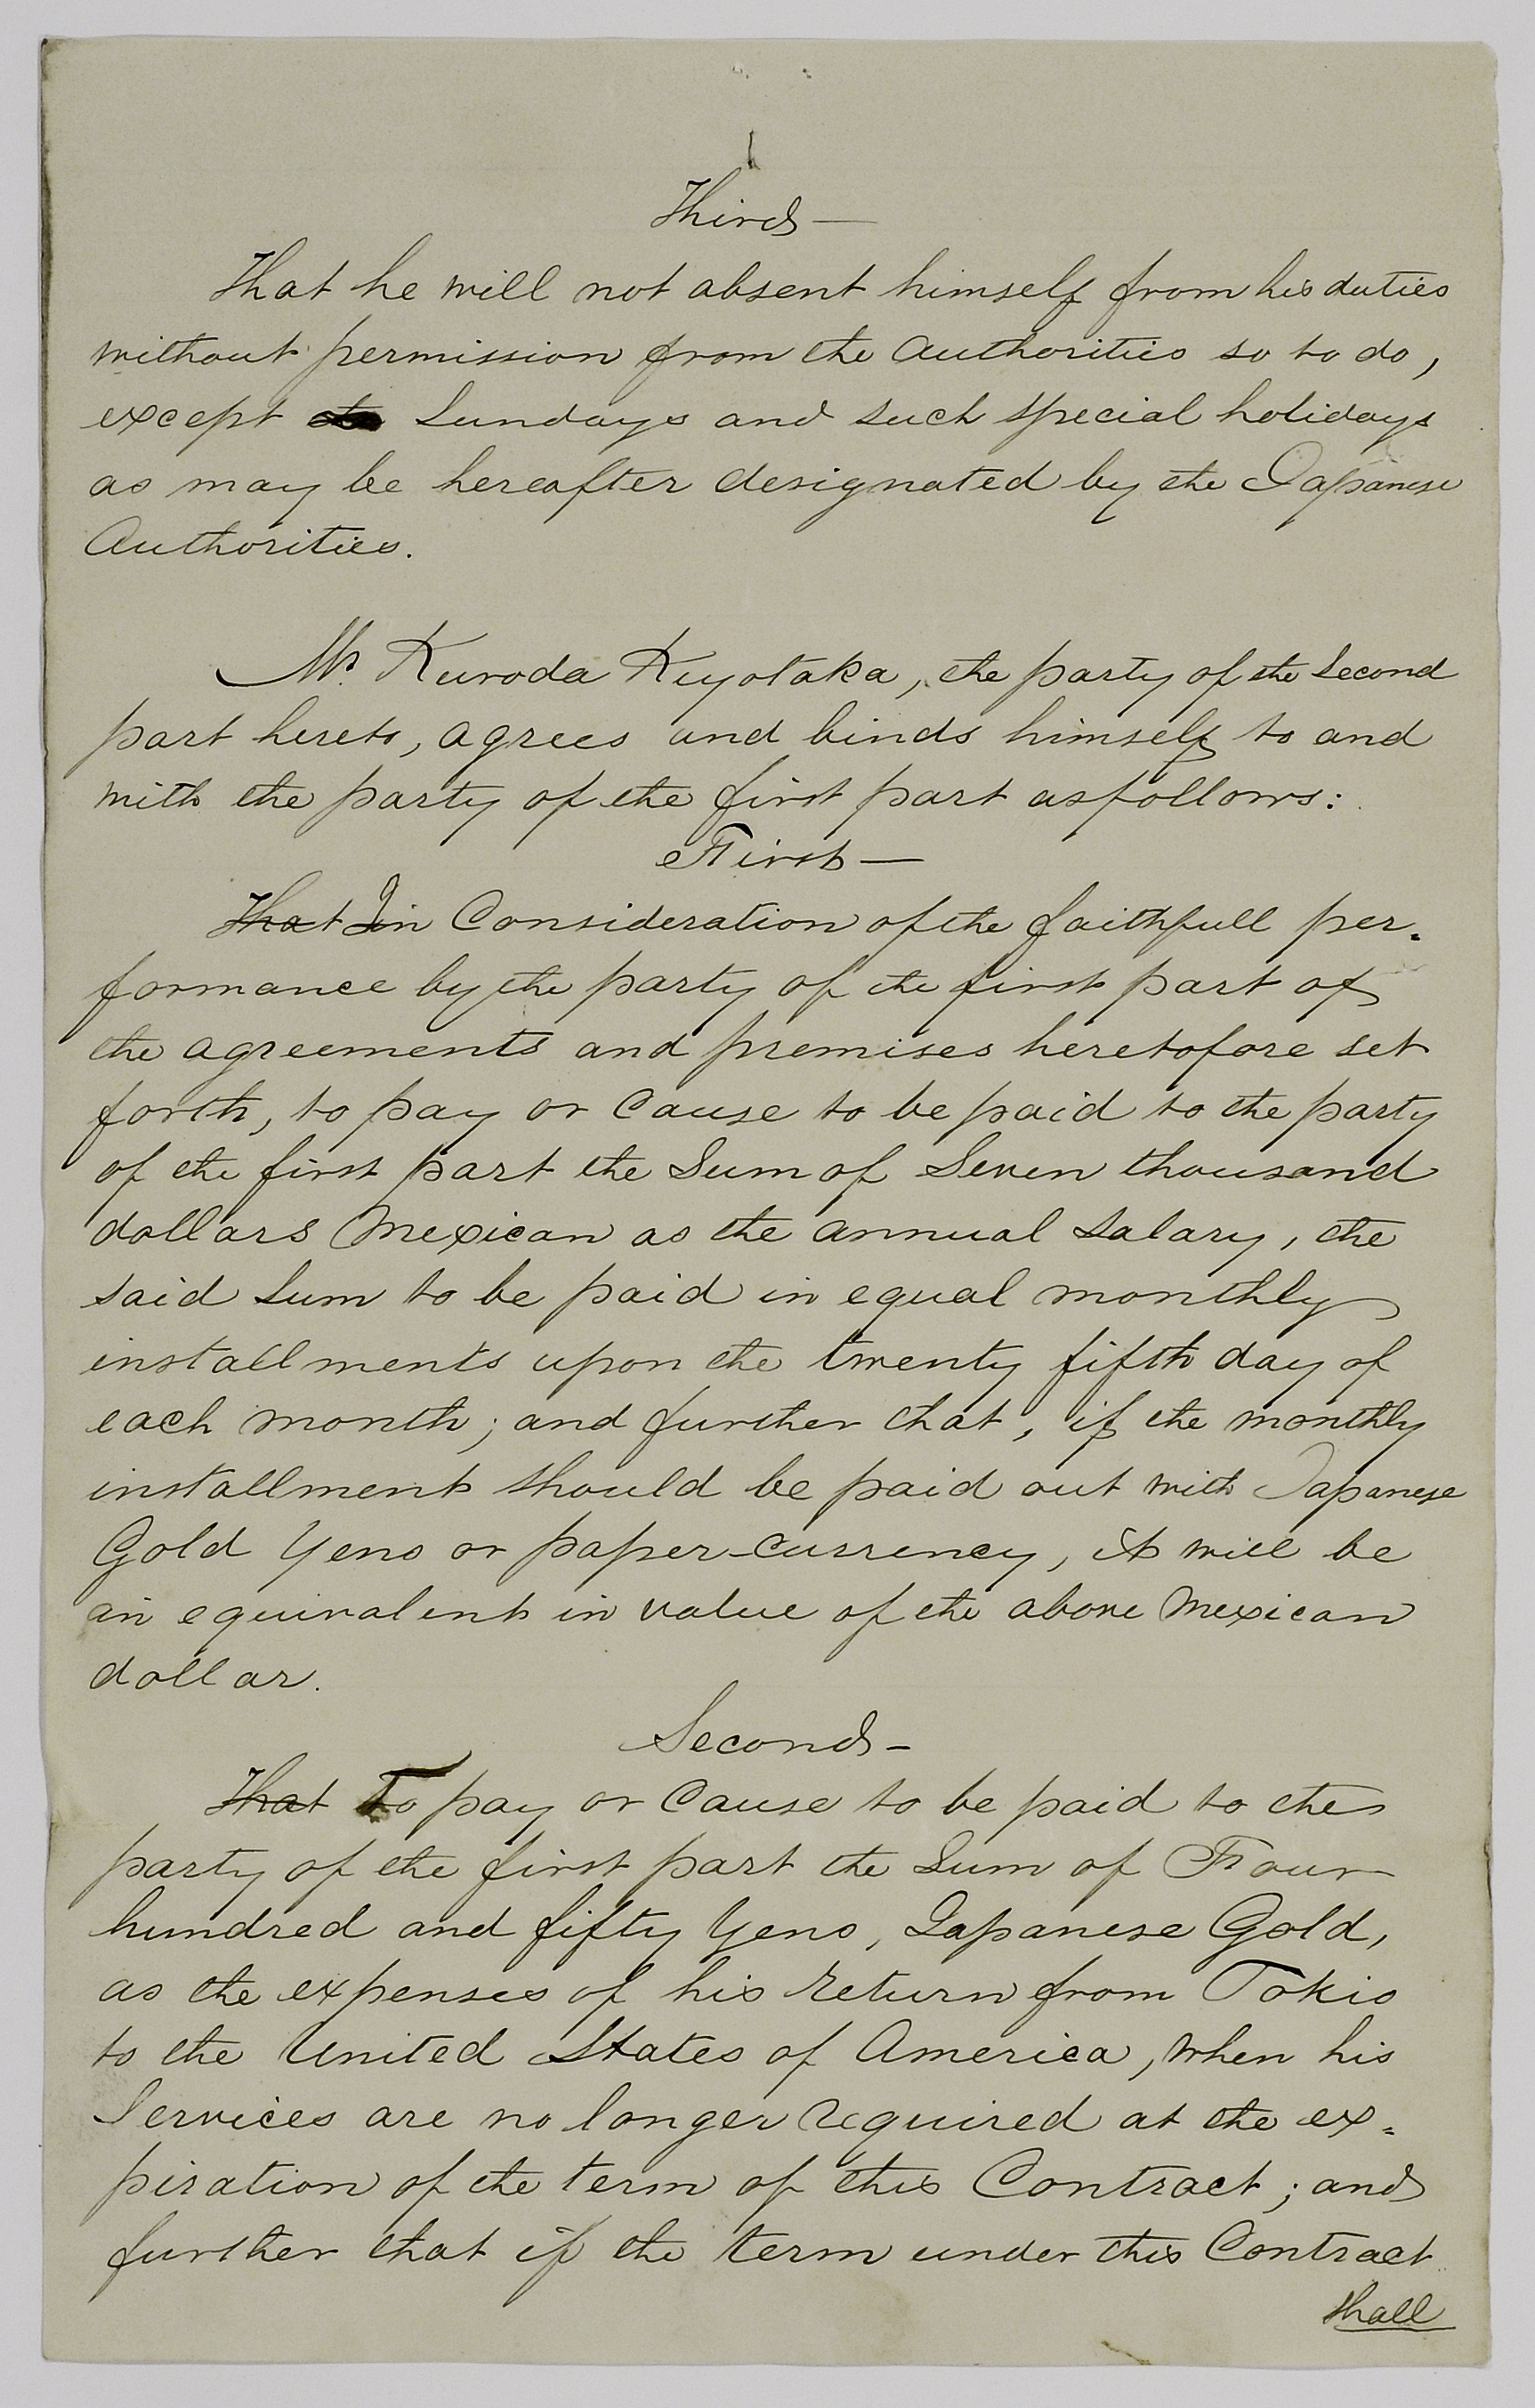 Third—
That he will not absent himself from his duties
without permission from the Authorities so to do,
except Sundays and such special holidays
as may be hereafter designated by the Japanese
Authorities.
Mr. Kuroda Kuyotaka, the party of the Second
part hereto, agrees and binds himself to and
with the party of the first part as follows:
First—
That In Consideration of the faithfull per-
formance by the party of the first part of
the agreements and premises heretofore set
forth, to pay or cause to be paid to the party
of the first part the Sum of Seven thousand
dollars Mexican as the annual salary, the
said Sum to be paid in equal monthly
installments upon the twenty fifth day of
each month; and further that, if the monthly
installment should be paid out with Japanese
Gold Yens or paper-currency, it will be
an equivalent in value of the above Mexican
dollar.
Second-
That To pay or cause to be paid to the
party of the first part the Sum of Four
hundred and fifty Yens, Japanese Gold,
as the expenses of his return from Tokio
to the United States of America, when his
Services are no longer required at the ex-
piration of the term of this Contract; and
further that if the term under this Contract
shall